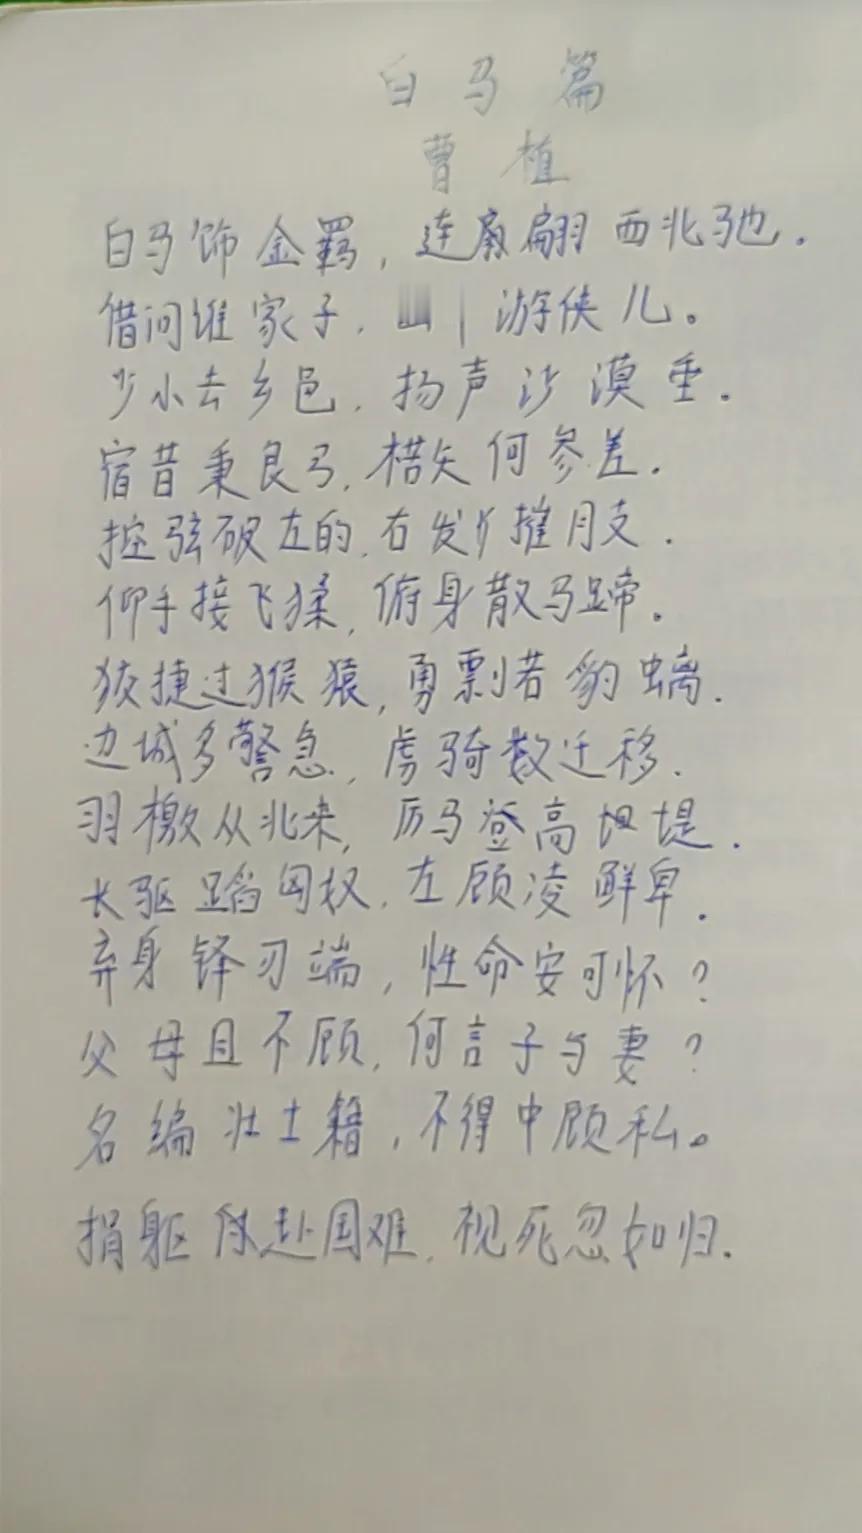 白马篇
曹植
白马饰金羁,连翩西北驰.
借问谁家子,游侠儿。
少小去乡邑,扬声沙漠垂.
宿昔秉良弓,楛矢何参差.
控弦破左的,右发摧月支.
仰手接飞猱,俯身散马蹄.
狡捷过猴猿,勇剽若豹螭.
边城多警急,虏骑数迁移.
羽檄从北来,厉马登高堤.
长驱蹈匈奴,左顾凌鲜卑.
弃身锋刃端,性命安可怀?
父母且不顾,何言子与妻?
名编壮士籍,不得中顾私。
捐躯赴国难,视死忽如归.